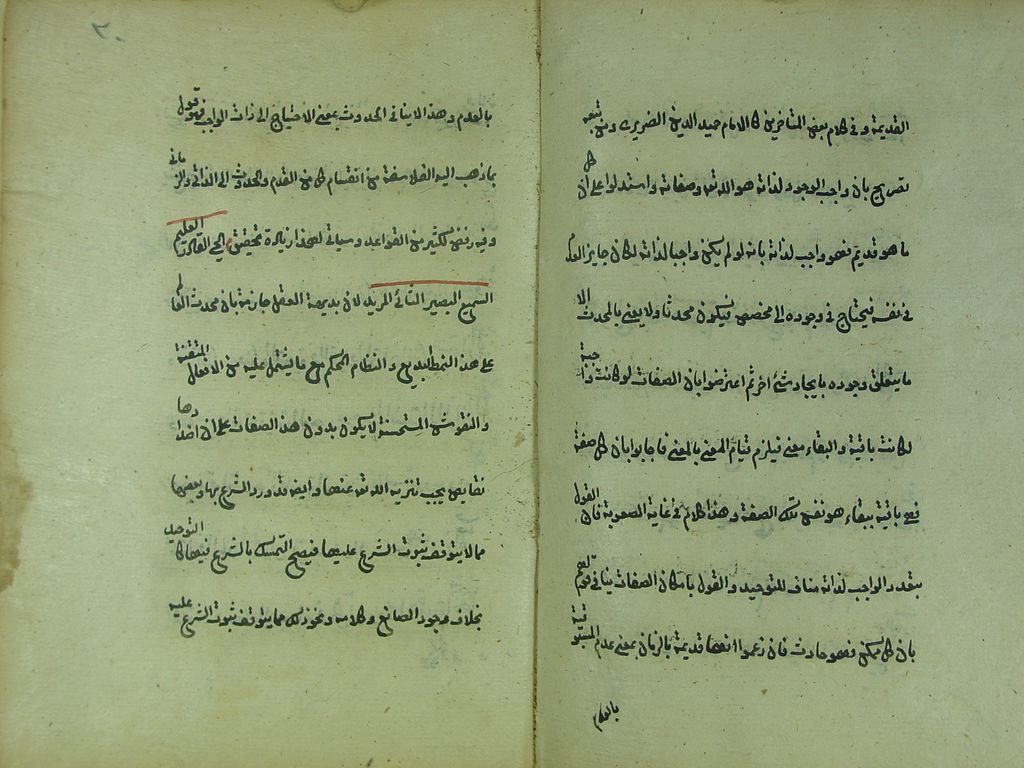 القديمة وفى كلام بعض المتأخرين كالامام حميد الدين الضريرى ومن تبعه
تصريح بان واجب الوجود لذاته هو الله تعه وصفاته واستدلوا على ان كل
ما هو قديم فهو واجب لذاته بانه لو لم يكن واجبا لذاته لكان جايز العدم
فى نفسه فيحتاج فى وجوده الى مخصص فيكون محدثا ولا يعنى بالمحدث الا
ما يتعلق وجوده بايجاد شئ اخر ثم اعترضوا بان الصفات لو كانت واجبة
لكانت باقية والبقاء معنى فيلزم قيام المعنى بالمعنى فاجابوا بان كل صفة
فهى باقية ببقاء هو نفس تلك الصفة وهذا كلام فى غاية الصعوبة فان القول
بتعدد الواجب لذاته مناف للتوحيد والقول بامكان الصفات ينافى قولهم
بان كل ممكن فهو حادث فان زعموا انها قديمة بالزمان بمعنى عدم المسبوقية
بالعدم
٢٠
بالعدم وهذا لا ينافى الحدوث بمعنى الاحتياج الى ذات الواجب فهو قول
بما ذهب اليه الفلاسفة من انقسام كل من القدم والحدوث الى الذاتى والزمانى
وفيه رفض لكثير من القواعد وسياتى لهذا زيادة تحقيق الحى القادر العليم
السميع البصير الشائى المريد لان بديهة العقل جازمة بان محدث العالم
على هذا النمط البديع والنظام المحكم مع ما يشتمل عليه من الافعال المتقنة
والنقوش المستحسنة لا يكون بدون هذه الصفات على ان اضدادها
نقايص يجب تنزيه الله تعه عنها وايضا قد ورد الشرع بها وبعضها
مما لا يتوقف ثبوت الشرع عليها فيصح التمسك بالشرع فيها كالتوحيد
بخلاف وجود الصانع وكلامه ونحو ذلك مما يتوقف ثبوت الشرع عليه